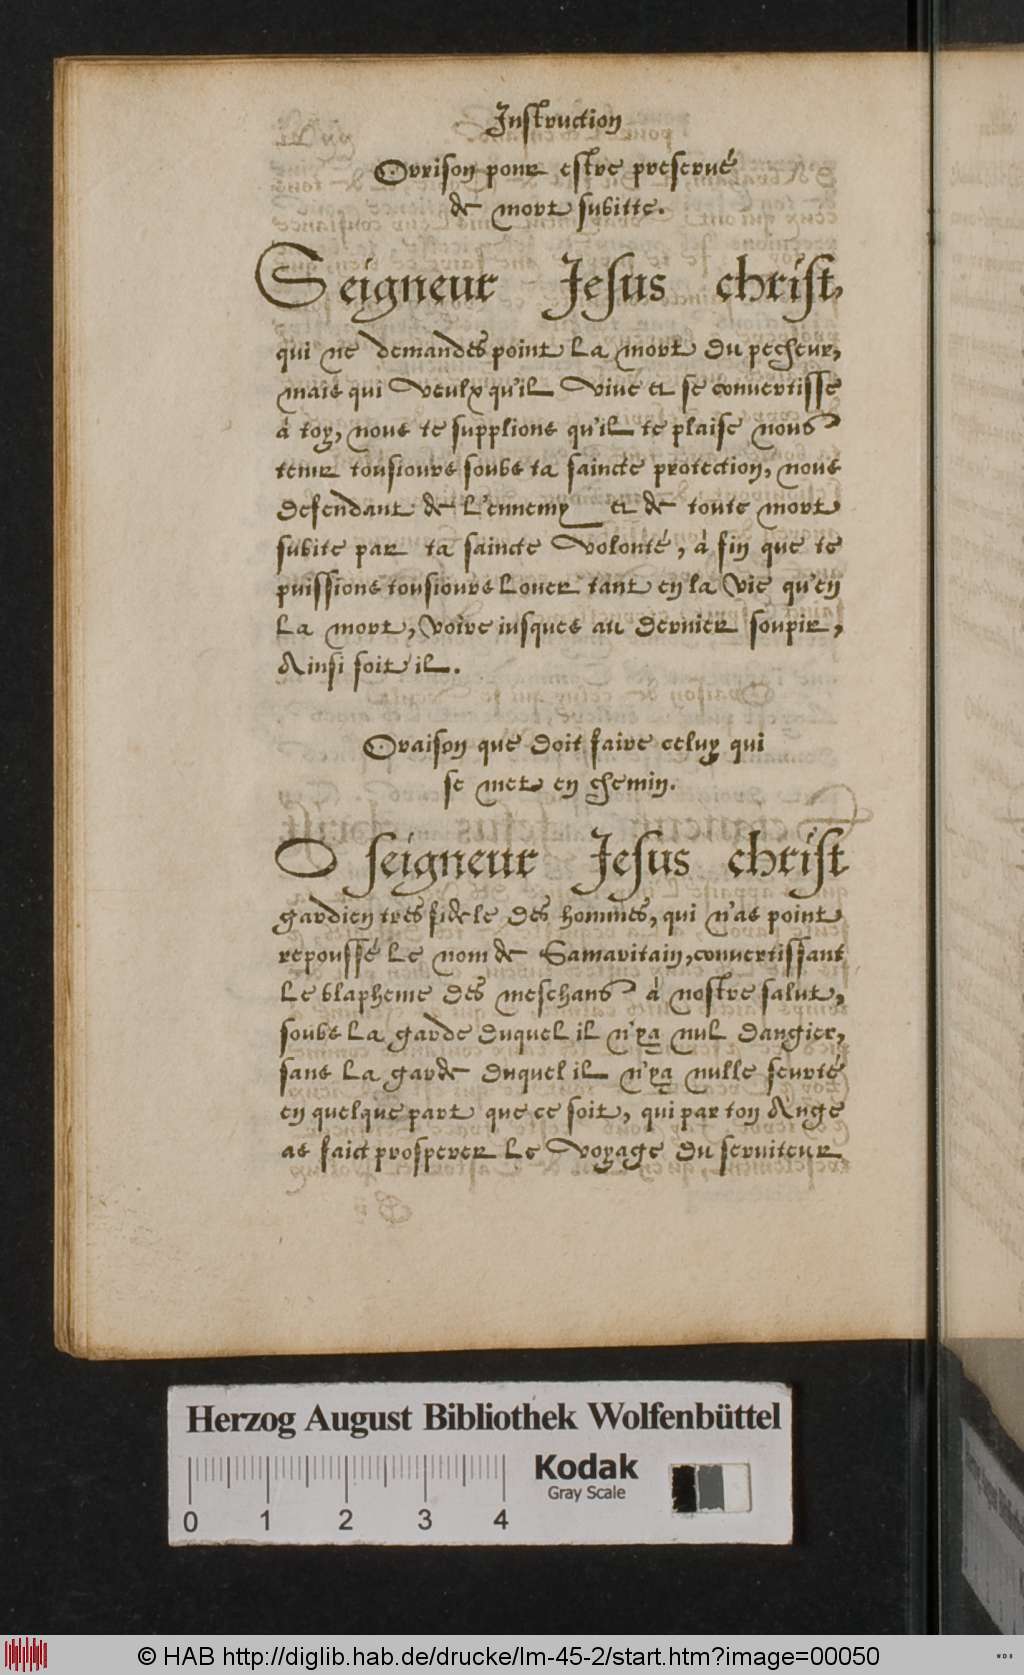 Instruction
Orrison pour estre preserué
de mort subitte.
Seigneur Jesus christ,
qui ne demandes point la mort du pecheur,
mais qui veulx qu'il viue et se conuertisse
à toy, nous te supplions qu'il te plaise nous
tenir tousiours soubs ta saincte protection, nous
defendant de l'ennemy et de toute mort
subite par ta saincte volonté, à fin que te
puissions tousiours louer tant en la vie qu'en
la mort, voire iusques au dernier soupir,
Ainsi soit il.
Oraison que doit faire celuy qui
se met en chemin.
O seigneur Jesus christ
gardien tres fidele des hommes, qui n'as point
repoussé le nom de Samaritain, conuertissant
le blapheme des meschans à nostre salut,
soubs la garde duquel il n'ya nul dangier,
sans la garde duquel il n'ya nulle seurté
en quelque part que ce soit, qui par ton Ange
as faict prosperer le voyage du seruiteur
Herzog August Bibliothek Wolfenbüttel
Kodak
Gray Scale
0 1 2 3 4
© HAB http://diglib.hab.de/drucke/lm-45-2/start.htm?image=00050